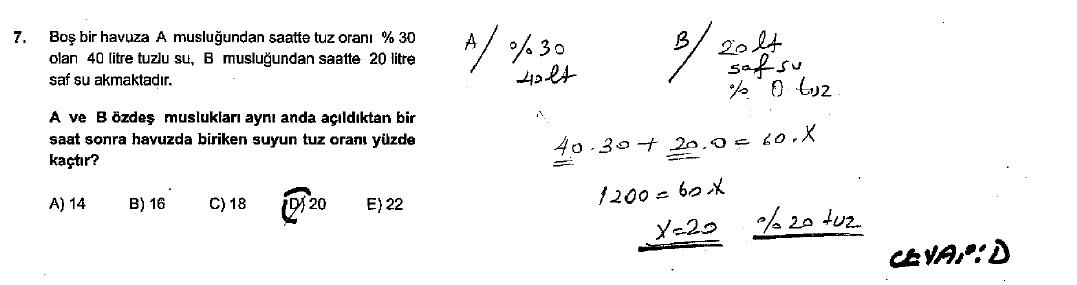 7. Boş bir havuza A musluğundan saatte tuz oranı % 30
olan 40 litre tuzlu su, B musluğundan saatte 20 litre
saf su akmaktadır.
A ve B özdeş muslukları aynı anda açıldıktan bir
saat sonra havuzda biriken suyun tuz oranı yüzde
kaçtır?
A) 14 B) 16 C) 18 D) 20 E) 22
A/ % 30
40 lt
B/ 20 lt
saf su
% 0 tuz
40.30 + 20.0 = 60.X
1200 = 60 X
X=20 % 20 tuz
CEVAP: D